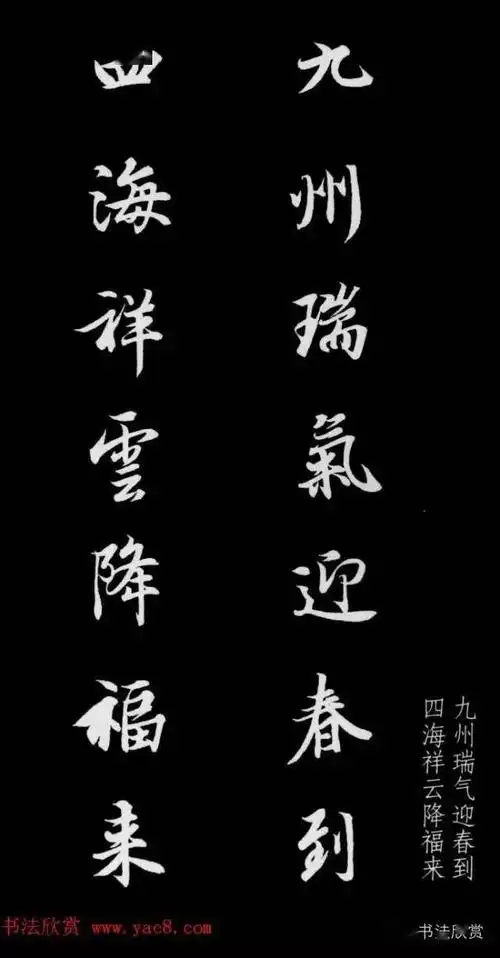 九州瑞氣迎春到
四海祥雲降福来
九州瑞气迎春到
四海祥云降福来
书法欣赏 www.yac8.com
书法欣赏